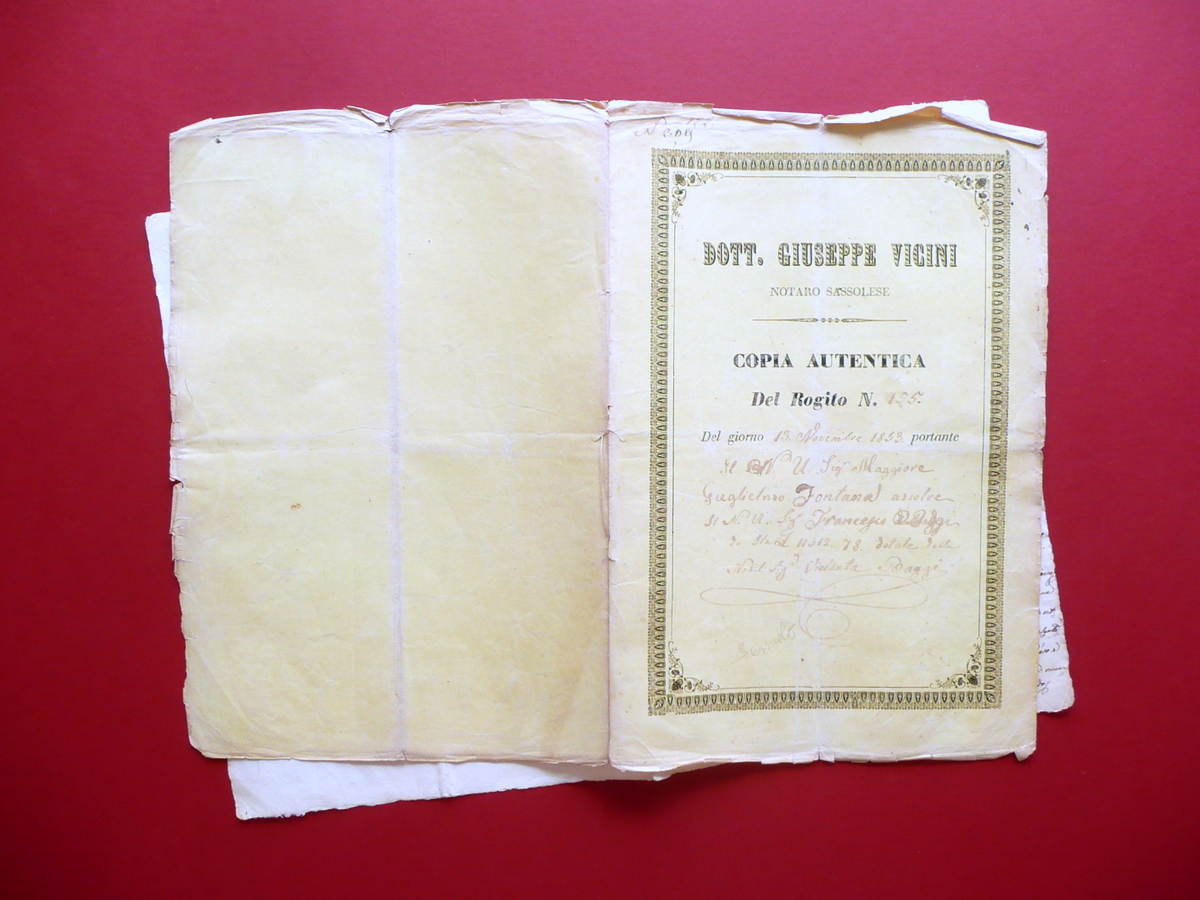 DOTT. GIUSEPPE VICINI
NOTARO SASSOLESE
COPIA AUTENTICA
Del Rogito N. 125.
Del giorno 13. Novembre 1853. portante
Il N. U. Sigr Maggiore
Guglielmo Fontana assolve
Il N. U. Sigr Francesco
11312. 78. dotale della
Violenta Baggi